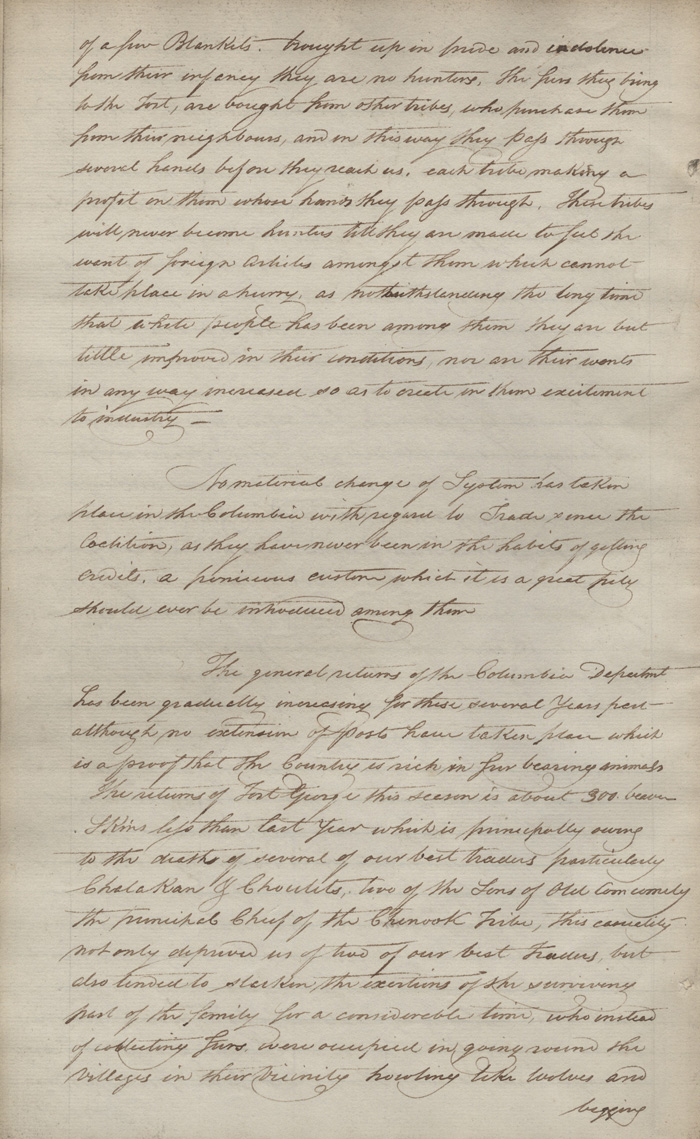 of a few Blankets. brought up in pride and indolence
from their infancy they are no hunters, The furs they bring
to the Fort, are bought from other tribes, who purchase them
from their neighbours, and in this way they pass through
several hands before they reach us. each tribe making a
profit on them whose hands they pass through. These tribes
will never become hunters till they are made to feel the
want of foreign articles amongst them which cannot
take place in a hurry, as notwithstanding the long time
that white people has been among them they are but
little improved in their conditions, nor are their wants
in any way increased so as to create in them excitement
to industry —
No material change of System has taken
place in the Columbia with regard to Trade since the
Coalition, as they have never been in the habits of getting
credits. a pernicious custom which it is a great pity
should ever be introduced among them
The general returns of the Columbia Department
has been gradually increasing for these several Years past
although no extension of posts have taken place which
is a proof that the Country is rich in fur bearing animals
The returns of Fort George this season is about 300 beaver
Skins less than last Year which is principally owing
to the deaths of several of our best traders particularly
Chalakan & Choulits, two of the Sons of Old Concomely
the principal Chief of the Chenook Tribe, this casuality
not only deprived us of two of our best Traders, but
also tended to slacken the exertions of the surviving
part of the family for a considerable time, who instead
of collecting furs were occupied in going round the
Villages in their vicinity howling like Wolves and
begging